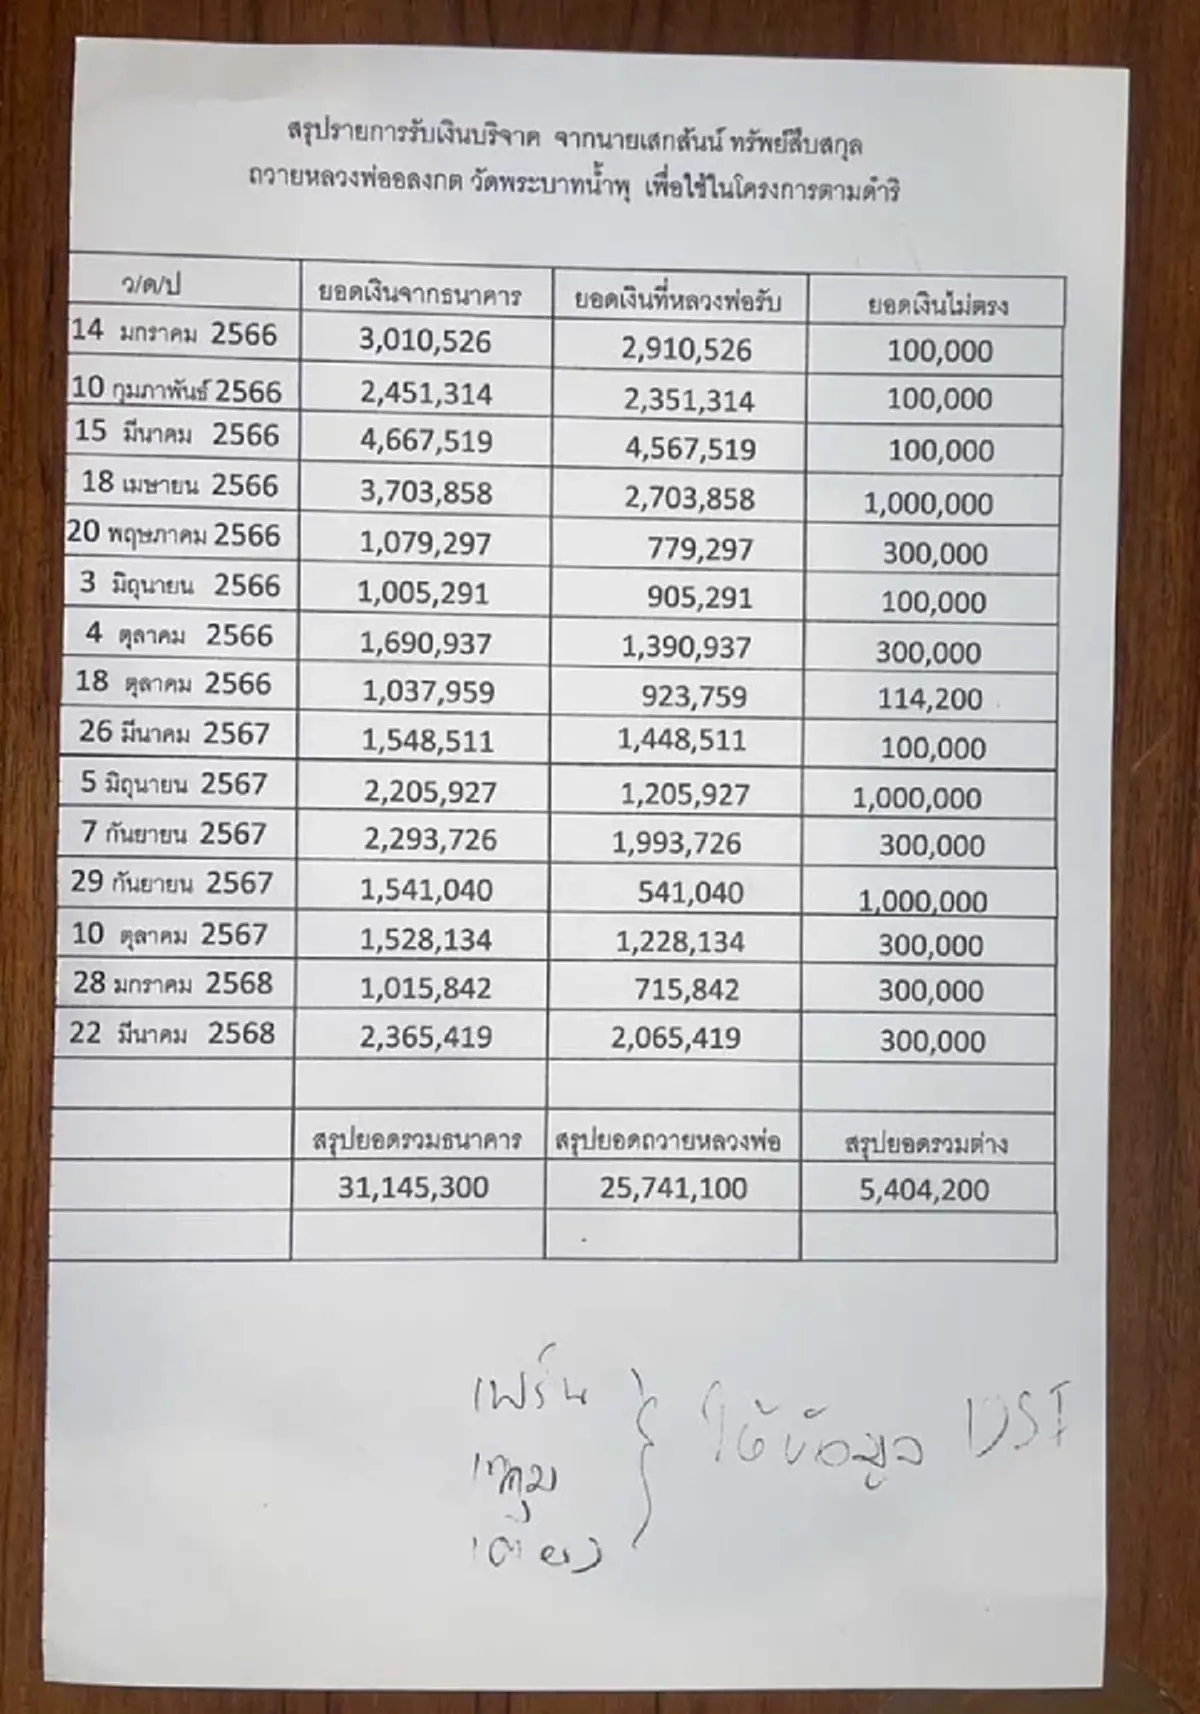 สรุปรายการรับเงินบริจาค จากนายเสกสันน์ ทรัพย์สืบสกุล
ถวายหลวงพ่ออลงกต วัดพระบาทน้ำพุ เพื่อใช้ในโครงการตามดำริ
ว/ด/ป ยอดเงินจากธนาคาร ยอดเงินที่หลวงพ่อรับ ยอดเงินไม่ตรง
14 มกราคม 2566 3,010,526 2,910,526 100,000
10 กุมภาพันธ์ 2566 2,451,314 2,351,314 100,000
15 มีนาคม 2566 4,667,519 4,567,519 100,000
18 เมษายน 2566 3,703,858 2,703,858 1,000,000
20 พฤษภาคม 2566 1,079,297 779,297 300,000
3 มิถุนายน 2566 1,005,291 905,291 100,000
4 ตุลาคม 2566 1,690,937 1,390,937 300,000
18 ตุลาคม 2566 1,037,959 923,759 114,200
26 มีนาคม 2567 1,548,511 1,448,511 100,000
5 มิถุนายน 2567 2,205,927 1,205,927 1,000,000
7 กันยายน 2567 2,293,726 1,993,726 300,000
29 กันยายน 2567 1,541,040 541,040 1,000,000
10 ตุลาคม 2567 1,528,134 1,228,134 300,000
28 มกราคม 2568 1,015,842 715,842 300,000
22 มีนาคม 2568 2,365,419 2,065,419 300,000
สรุปยอดรวมธนาคาร สรุปยอดถวายหลวงพ่อ สรุปยอดรวมต่าง
31,145,300 25,741,100 5,404,200
เฟร์น
ให้ข้อมูล DSI